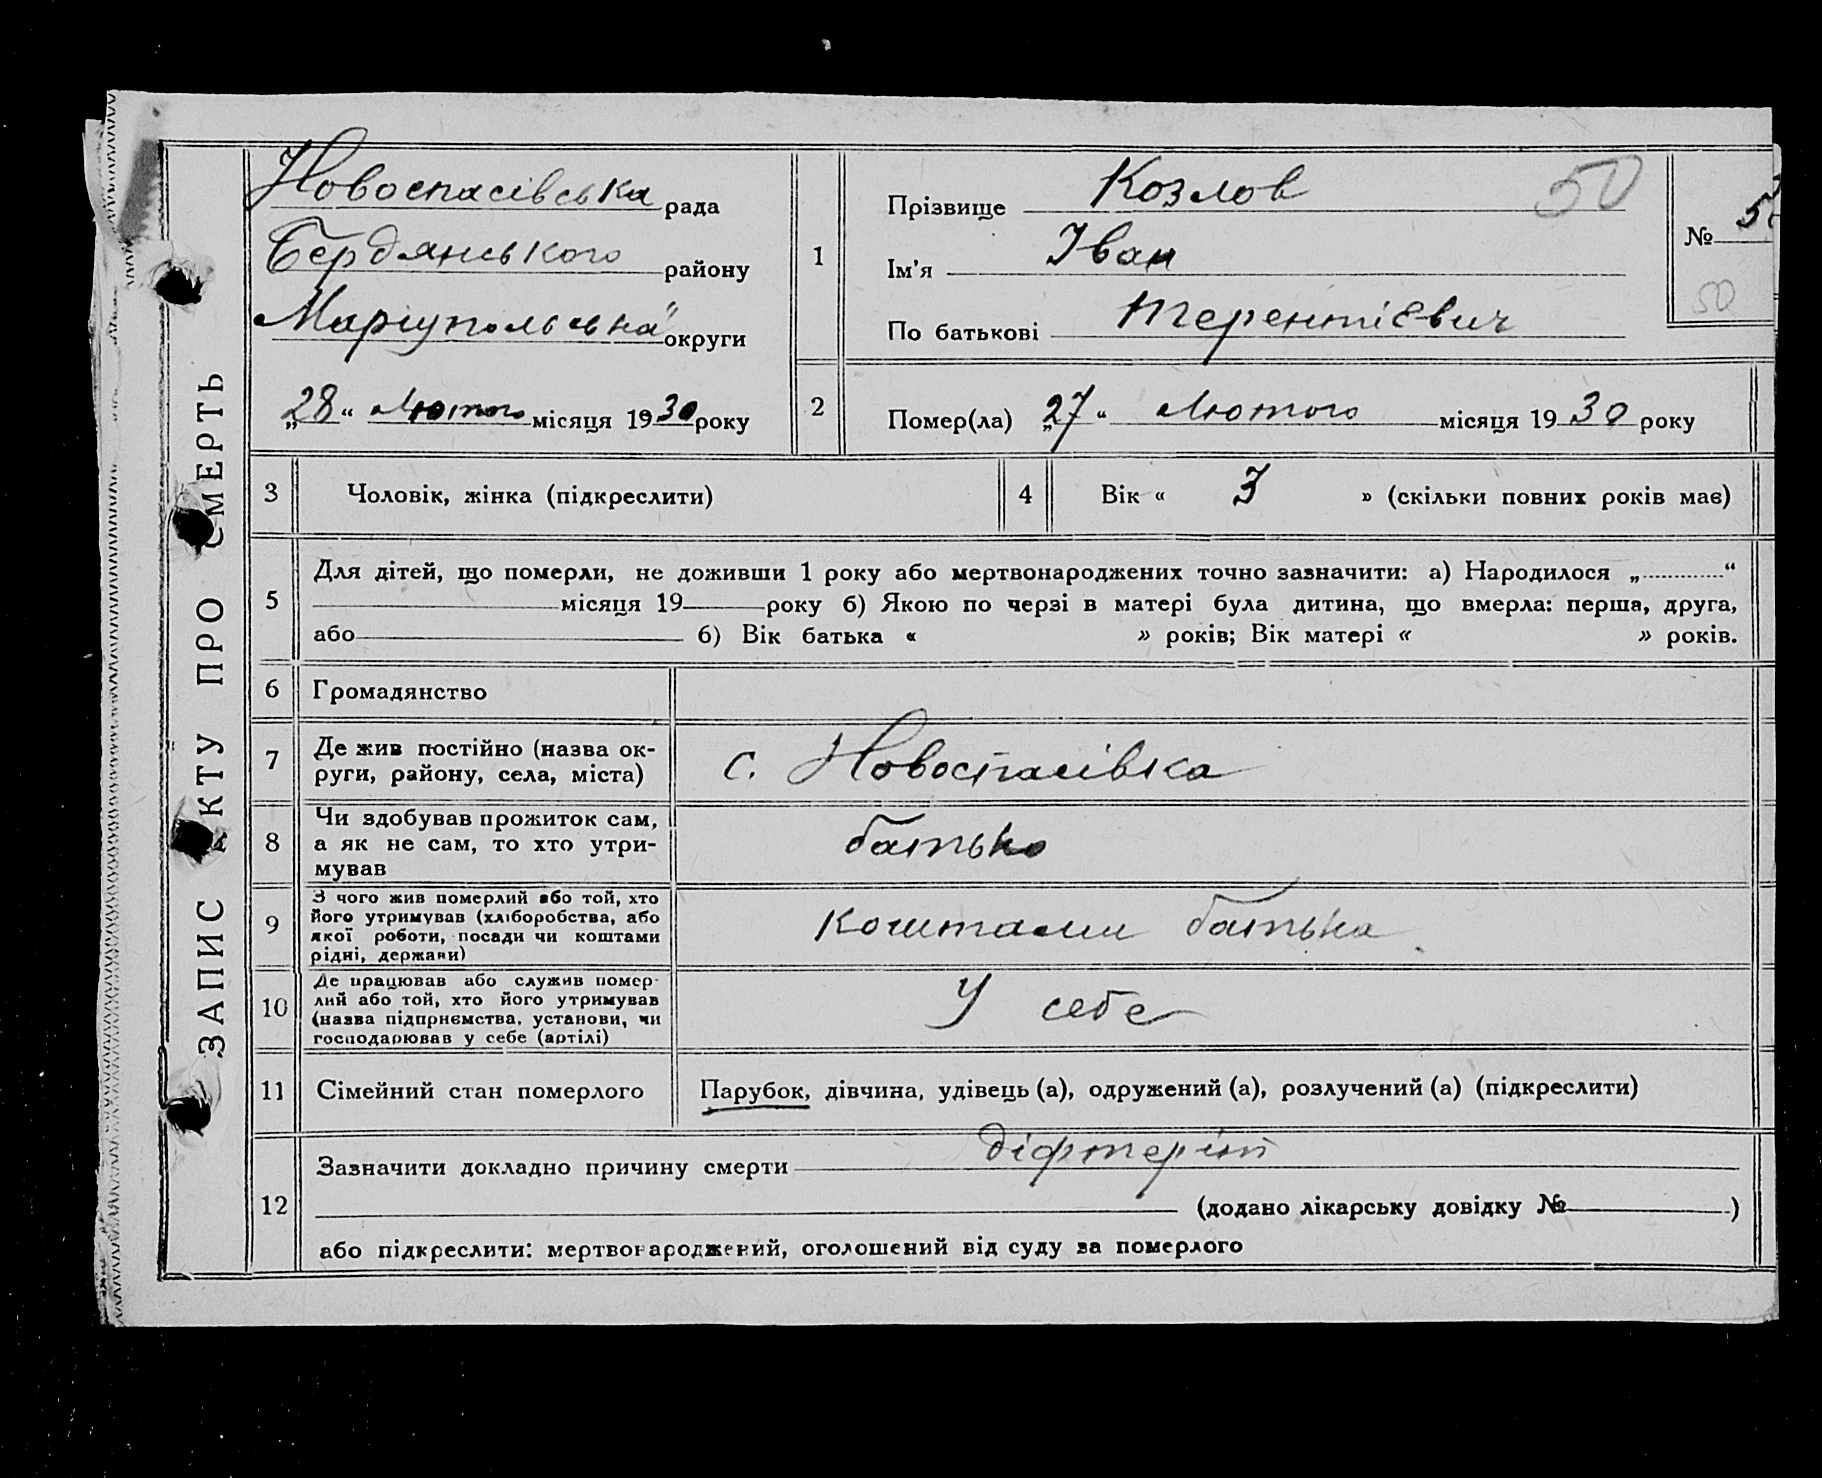 ЗАПИС АКТУ ПРО СМЕРТЬ
Новоспасівська рада
Бердянського району
Маріупольська округи
„28“ Лютого місяця 1930 року
1
Прізвище Козлов 50
Ім’я Іван
По батькові Терентієвич
№ 50
50
2
Помер(ла) „27“ Лютого місяця 1930 року
3 Чоловік, жінка (підкреслити)
4 Вік « 3 » (скільки повних років має)
5
Для дітей, що померли, не доживши 1 року або мертвонароджених точно зазначити: а) Народилося „ “
місяця 19 року б) Якою по черзі в матері була дитина, що вмерла: перша, друга,
або б) Вік батька « » років; Вік матері « » років.
6 Громадянство
7
Де жив постійно (назва ок-
руги, району, села, міста)
с. Новоспасівка
8
Чи здобував прожиток сам,
а як не сам, то хто утри-
мував
батько
9
З чого жив померлий або той, хто
його утримував (хліборобства, або
якої роботи, посади чи коштами
рідні, держави)
коштами батька.
10
Де працював або служив помер-
лий або той, хто його утримував
(назва підприємства, установи, чи
господарював у себе (артілі)
У себе
11 Сімейний стан померлого
Парубок, дівчина, удівець (а), одружений (а), розлучений (а) (підкреслити)
12
Зазначити докладно причину смерти діфтеріт
(додано лікарську довідку № )
або підкреслити: мертвонароджений, оголошений від суду за померлого